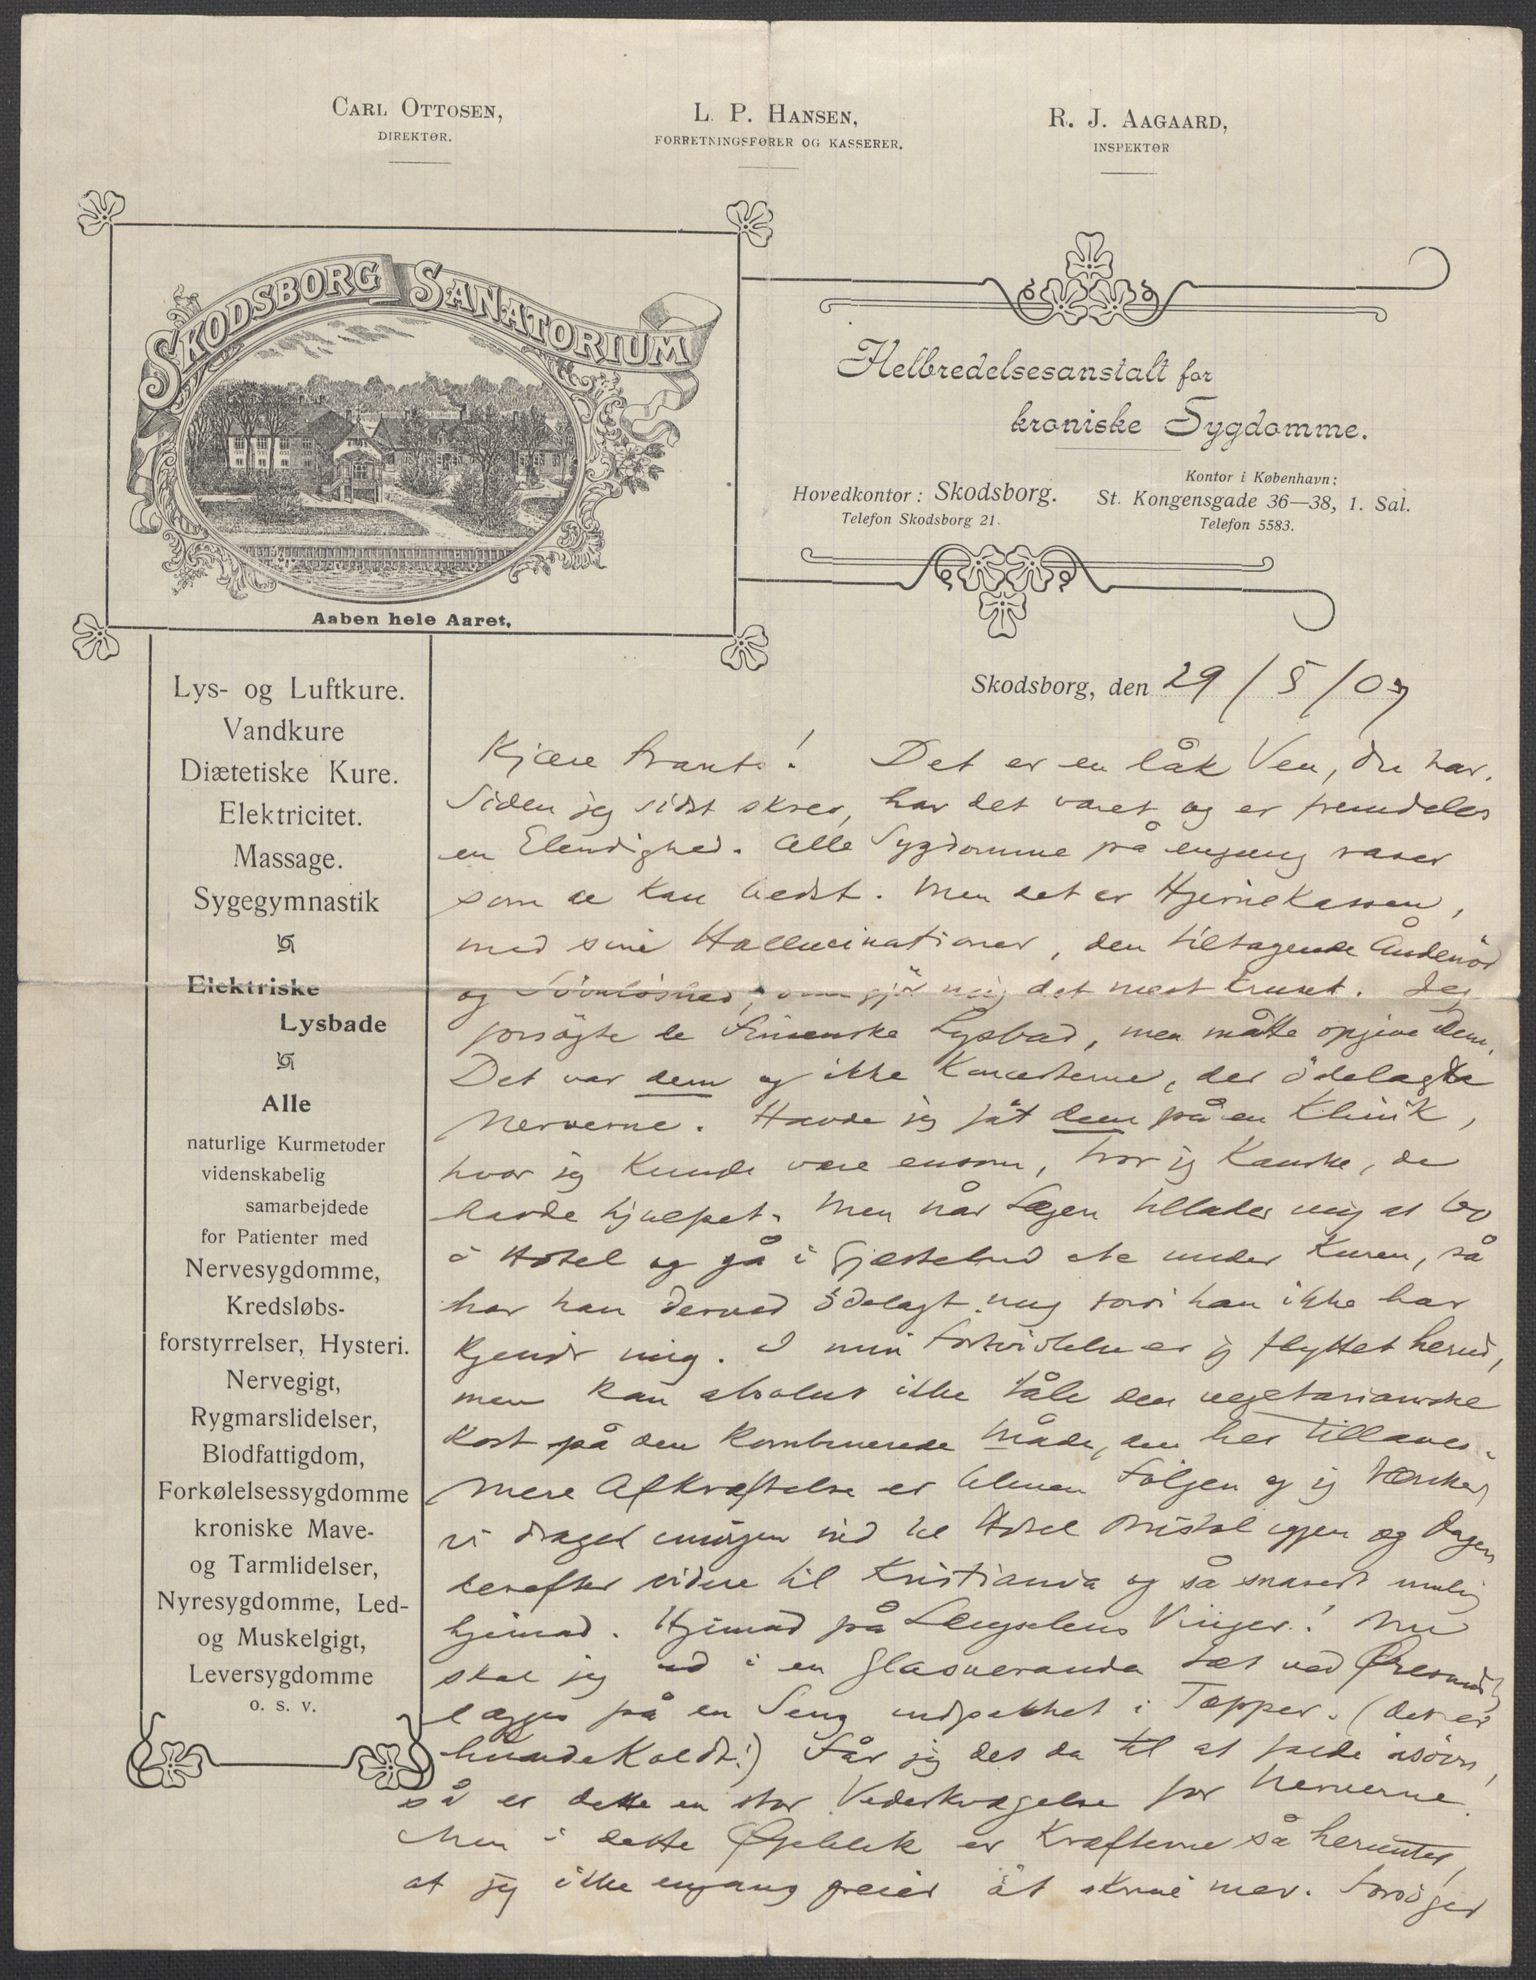 CARL OTTOSEN,
DIREKTØR.
L. P. HANSEN,
FORRETNINGSFØRER OG KASSERER.
R. J. AAGAARD,
INSPEKTØR
SKODSBORG SANATORIUM
Aaben hele Aaret.
Helbredelsesanstalt for
kroniske Sygdomme.
Hovedkontor: Skodsborg.
Telefon Skodsborg 21.
Kontor i København:
St. Kongensgade 36—38, 1. Sal.
Telefon 5583.
Lys- og Luftkure.
Vandkure
Diætetiske Kure.
Elektricitet.
Massage.
Sygegymnastik
Elektriske
Lysbade
Alle
naturlige Kurmetoder
videnskabelig
samarbejdede
for Patienter med
Nervesygdomme,
Kredsløbs-
forstyrrelser, Hysteri.
Nervegigt,
Rygmarslidelser,
Blodfattigdom,
Forkølelsessygdomme
kroniske Mave-
og Tarmlidelser,
Nyresygdomme, Led-
og Muskelgigt,
Leversygdomme
o. s. v.
Skodsborg, den 29/5/07
Kjære Frants! Det er en låk Ven, du har.
Siden jeg sidst skrev, har det været og er fremdeles
en Elendighed. Alle Sygdomme på engang raser
som de kan bedst. Men det er Hjernekassen,
med sine Hallucinationer, den tiltagende Åndenød
og Søvnløshed, som gjør mig det mest trist. Jeg
forsøgte de Finsenske Lysbad, men måtte opgive dem.
Det var dem og ikke Koncerterne, der ödelagde
Nerverne. Havde jeg fåt dem på en Klinik,
hvor jeg kunde være ensom, tror jeg kanske, de
havde hjulpet. Men når Lægen tillader mig at bo
i Hotel og gå i Gjæstebud etc under Kuren, så
har han derved ödelagt mig fordi han ikke har
kjendt mig. I min Fortvivlelse er jeg flyttet herud,
men kan absolut ikke tåle den vegetarianske
Kost på den kombinerede Måde, den her tillaves.
Mere Afkræftelse er bleven Följen og jeg tænker
vi drager imorgen ind til Hotel Bristol igjen og Dagen
derefter videre til Kristiania og så snarest mulig
hjemad. Hjemad på Længselens Vinger! Nu
skal jeg ud i en Glasveranda tæt ved Øresund
lægges på en Seng indpakket i Tæpper. (det er
hundekoldt!) Får jeg det da til at falde isøvn,
så er dette en stor Vederkvægelse for Nerverne.
Men i dette Øjeblik er Kræfterne så herunter,
at jeg ikke engang greier at skrive mer. Forsøger